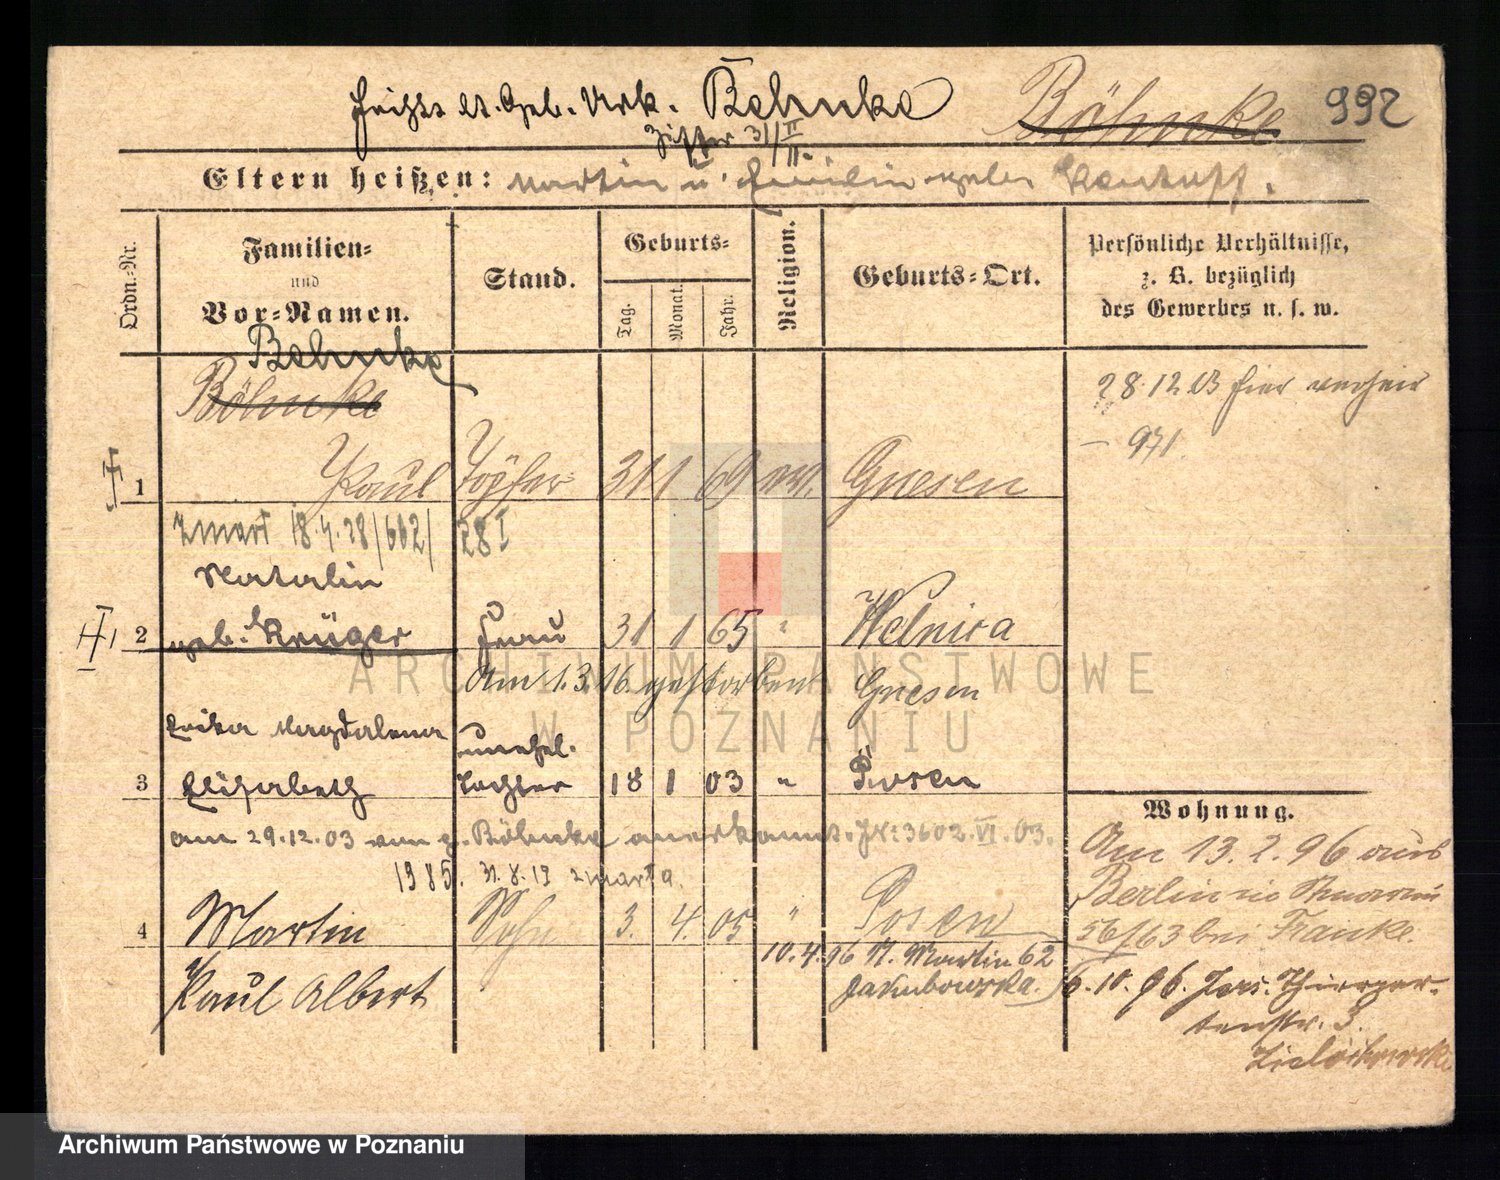 heißt lt. Geb. Urk. Behnke Böhnke 992
Ziffer 31/II
II.
Eltern heißen: Martin u.
Ordn.-Nr.
Familien-
und
Vor-Namen.
Stand.
Geburts-
Tag.
Monat.
Jahr.
Religion.
Geburts-Ort.
Persönliche Verhältnisse,
z. B. bezüglich
des Gewerbes u. s. w.
Behnke
Böhnke
28.12.03 hier verheir
971
1 Paul Töpfer 31 1 69 ev. Gnesen
zmarł 18.4.28/602/ 28 I
Natalie
2 geb. Krüger Frau 31 1 65 " Welnica
Am 1.3.16 gestorben Gnesen
Magdalena unehel.
3 Elisabeth Tochter 18 1 03 " Posen
Wohnung.
am 29.12.03 von p. Böhnke anerkannt. 3602.VI.03.
1985. 31.8.19 zmarła
4 Martin Sohn 3. 4. 05 " Posen
Paul Albert
Am 13.2.96 aus
Berlin
56/63 bei Franke.
10.4.96 St. Martin 62
Jakubowska.
6.10.96. Jers. Thiergar-
tenstr. 3.
ARCHIWUM PAŃSTWOWE
W POZNANIU
Archiwum Państwowe w Poznaniu